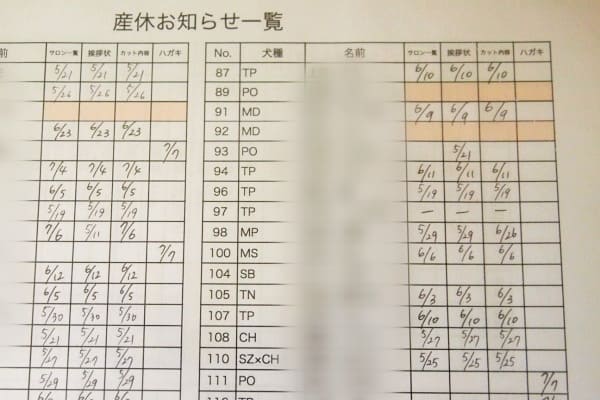 産休お知らせ一覧
前 サロン一覧 挨拶状 カット内容 ハガキ
5/21 5/21 5/21
5/26 5/26 5/26
6/23 6/23 6/23
7/7
7/4 7/4 7/4
6/5 6/5 6/5
5/19 5/19 5/19
7/6 5/11 7/6
7/7
6/12 6/12 6/12
6/5 6/5 6/5
5/30 5/30 5/30
5/21 5/21 5/21
5/27 5/27 5/27
5/29 5/29 5/29
No. 犬種 名前 サロン一覧 挨拶状 カット内容 ハガキ
87 TP 6/10 6/10 6/10
89 PO
91 MD 6/9 6/9 6/9
92 MD
93 PO 5/21
94 TP 6/11 6/11 6/11
96 TP 5/19 5/19 5/19
97 TP — — —
98 MP 5/29 5/29 6/26
100 MS 6/6 6/6 6/6
104 SB
105 TN 6/3 6/3 6/3
107 TP 6/10 6/10 6/10
108 CH 5/27 5/27 5/27
110 SZ×CH 5/25 5/25 5/25
111 PO 7/7